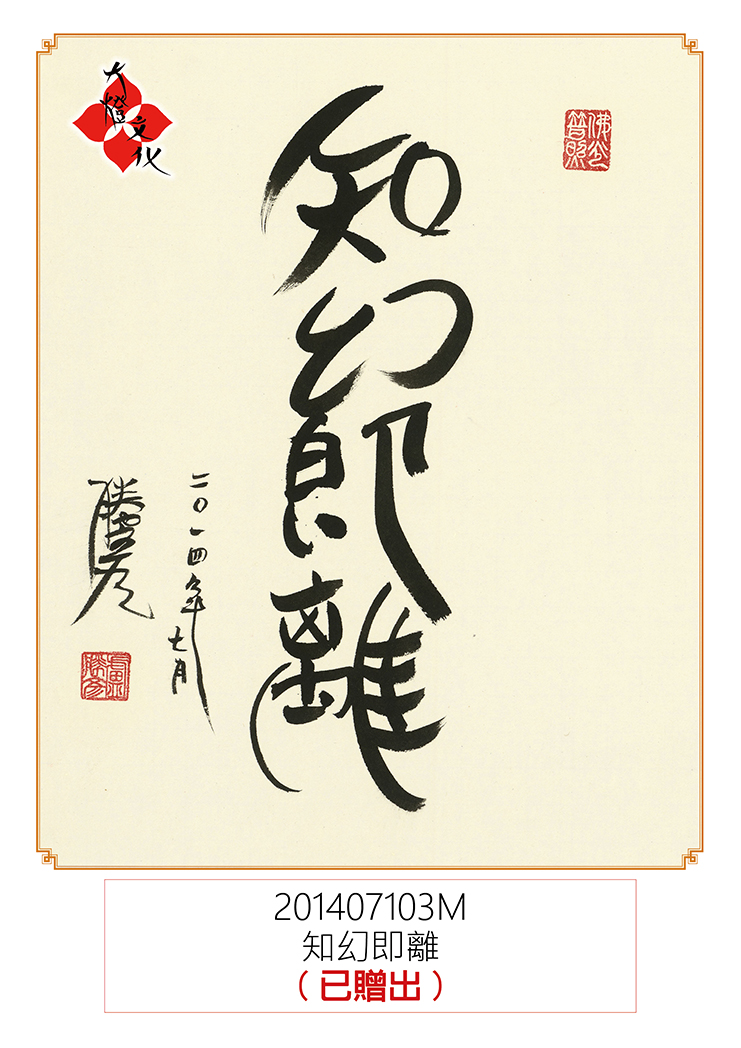 大燈文化
佛光普照
知幻即離
二〇一四年七月
勝彥
盧勝彥
201407103M
知幻即離
（已贈出）